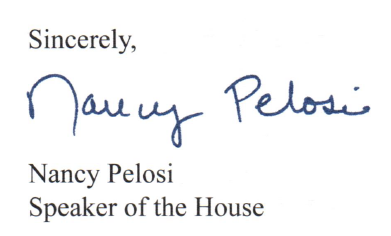 Sincerely,
Nancy Pelosi
Nancy Pelosi
Speaker of the House